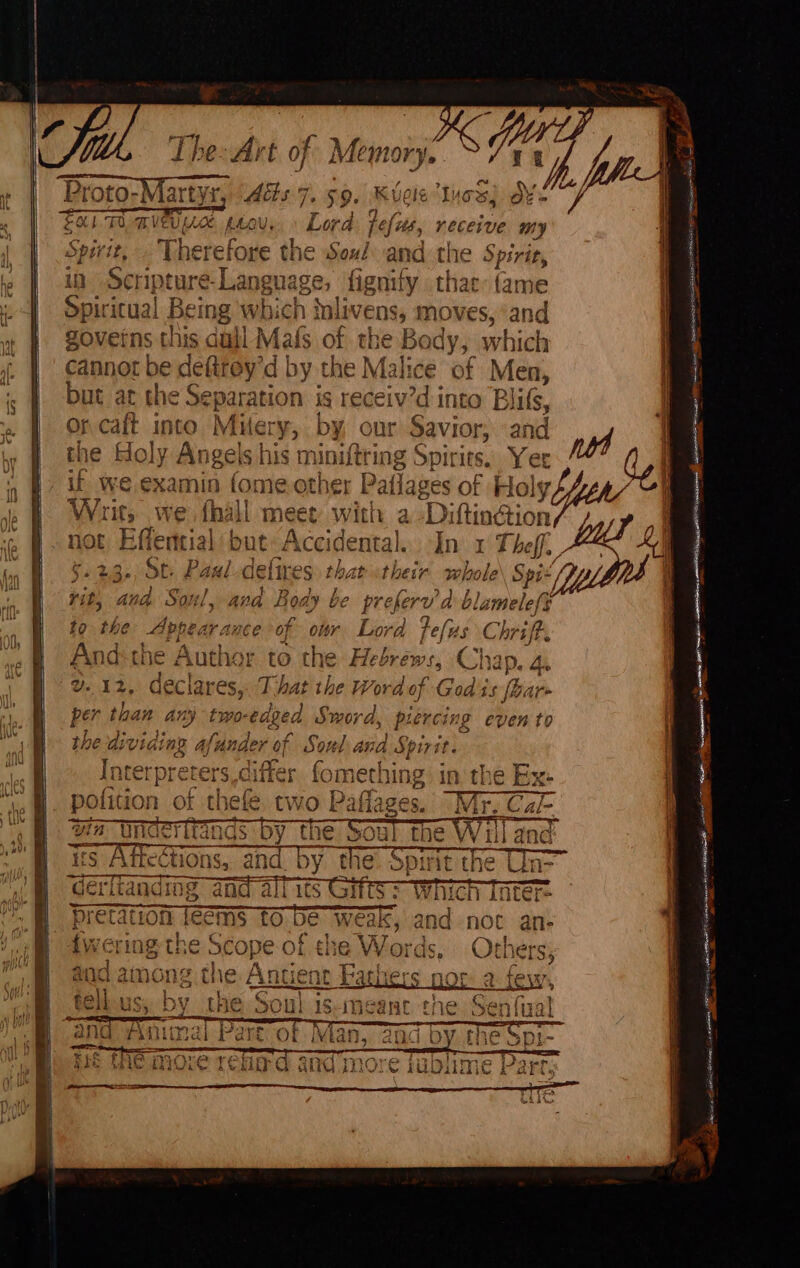 The Art of Memory. 11
Proto-Martyr, Acts 7. 59. Κύριε Ἰησοῦ δέ-
ξαι τὸ πνεῦμα μου, Lord Jeſus, receive my
Spirit, Therefore the Soul and the Spirit,
in Scripture-Language, ſignify that ſame
Spiritual Being which inlivens, moves, and
governs this dull Maſs of the Body, which
cannot be deſtroy'd by the Malice of Men,
but at the Separation is receiv'd into Bliſs,
or caſt into Miſery, by our Savior, and
the Holy Angels his miniſtring Spirits. Yet not
if we examin ſome other Paſſages of Holy
Writ, we ſhall meet with a Diſtinction
not Eſſential but Accidental. In 1 Theſſ. but
5. 23. St. Paul deſires that their whole Spi-
rit, and Soul, and Body be preſerv'd blameleſs
to the Appearance of our Lord Jeſus Chriſt.
And the Author to the Hebrews, Chap. 4.
v. 12. declares, That the Word of God is ſhar-
per than any two-edged Sword, piercing even to
the dividing aſunder of Soul and Spirit.
Interpreters differ ſomething in the Ex-
poſition of theſe two Paſſages. Mr. Cal-
vin underſtands by the Soul the Will and
its Affections, and by the Spirit the Un-
derſtanding and all its Gifts: which Inter-
pretation ſeems to be weak, and not an-
ſwering the Scope of the Words. Others,
and among the Antient Fathers not a few,
tell us, by the Soul is meant the Senſual
and Animal Part of Man, and by the Spi-
rit the more refin'd and more ſublime Part,
the